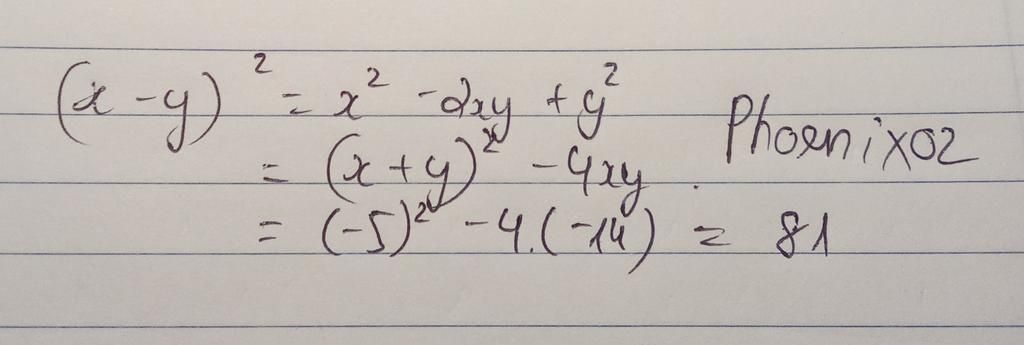 (x - y)² = x² - 2xy + y²
= (x + y)² - 4xy .
Phoenix02
= (-5)² - 4.(-14) = 81